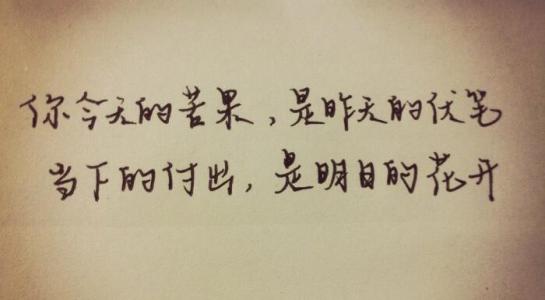 你今天的苦果，是昨天的伏笔
当下的付出，是明日的花开